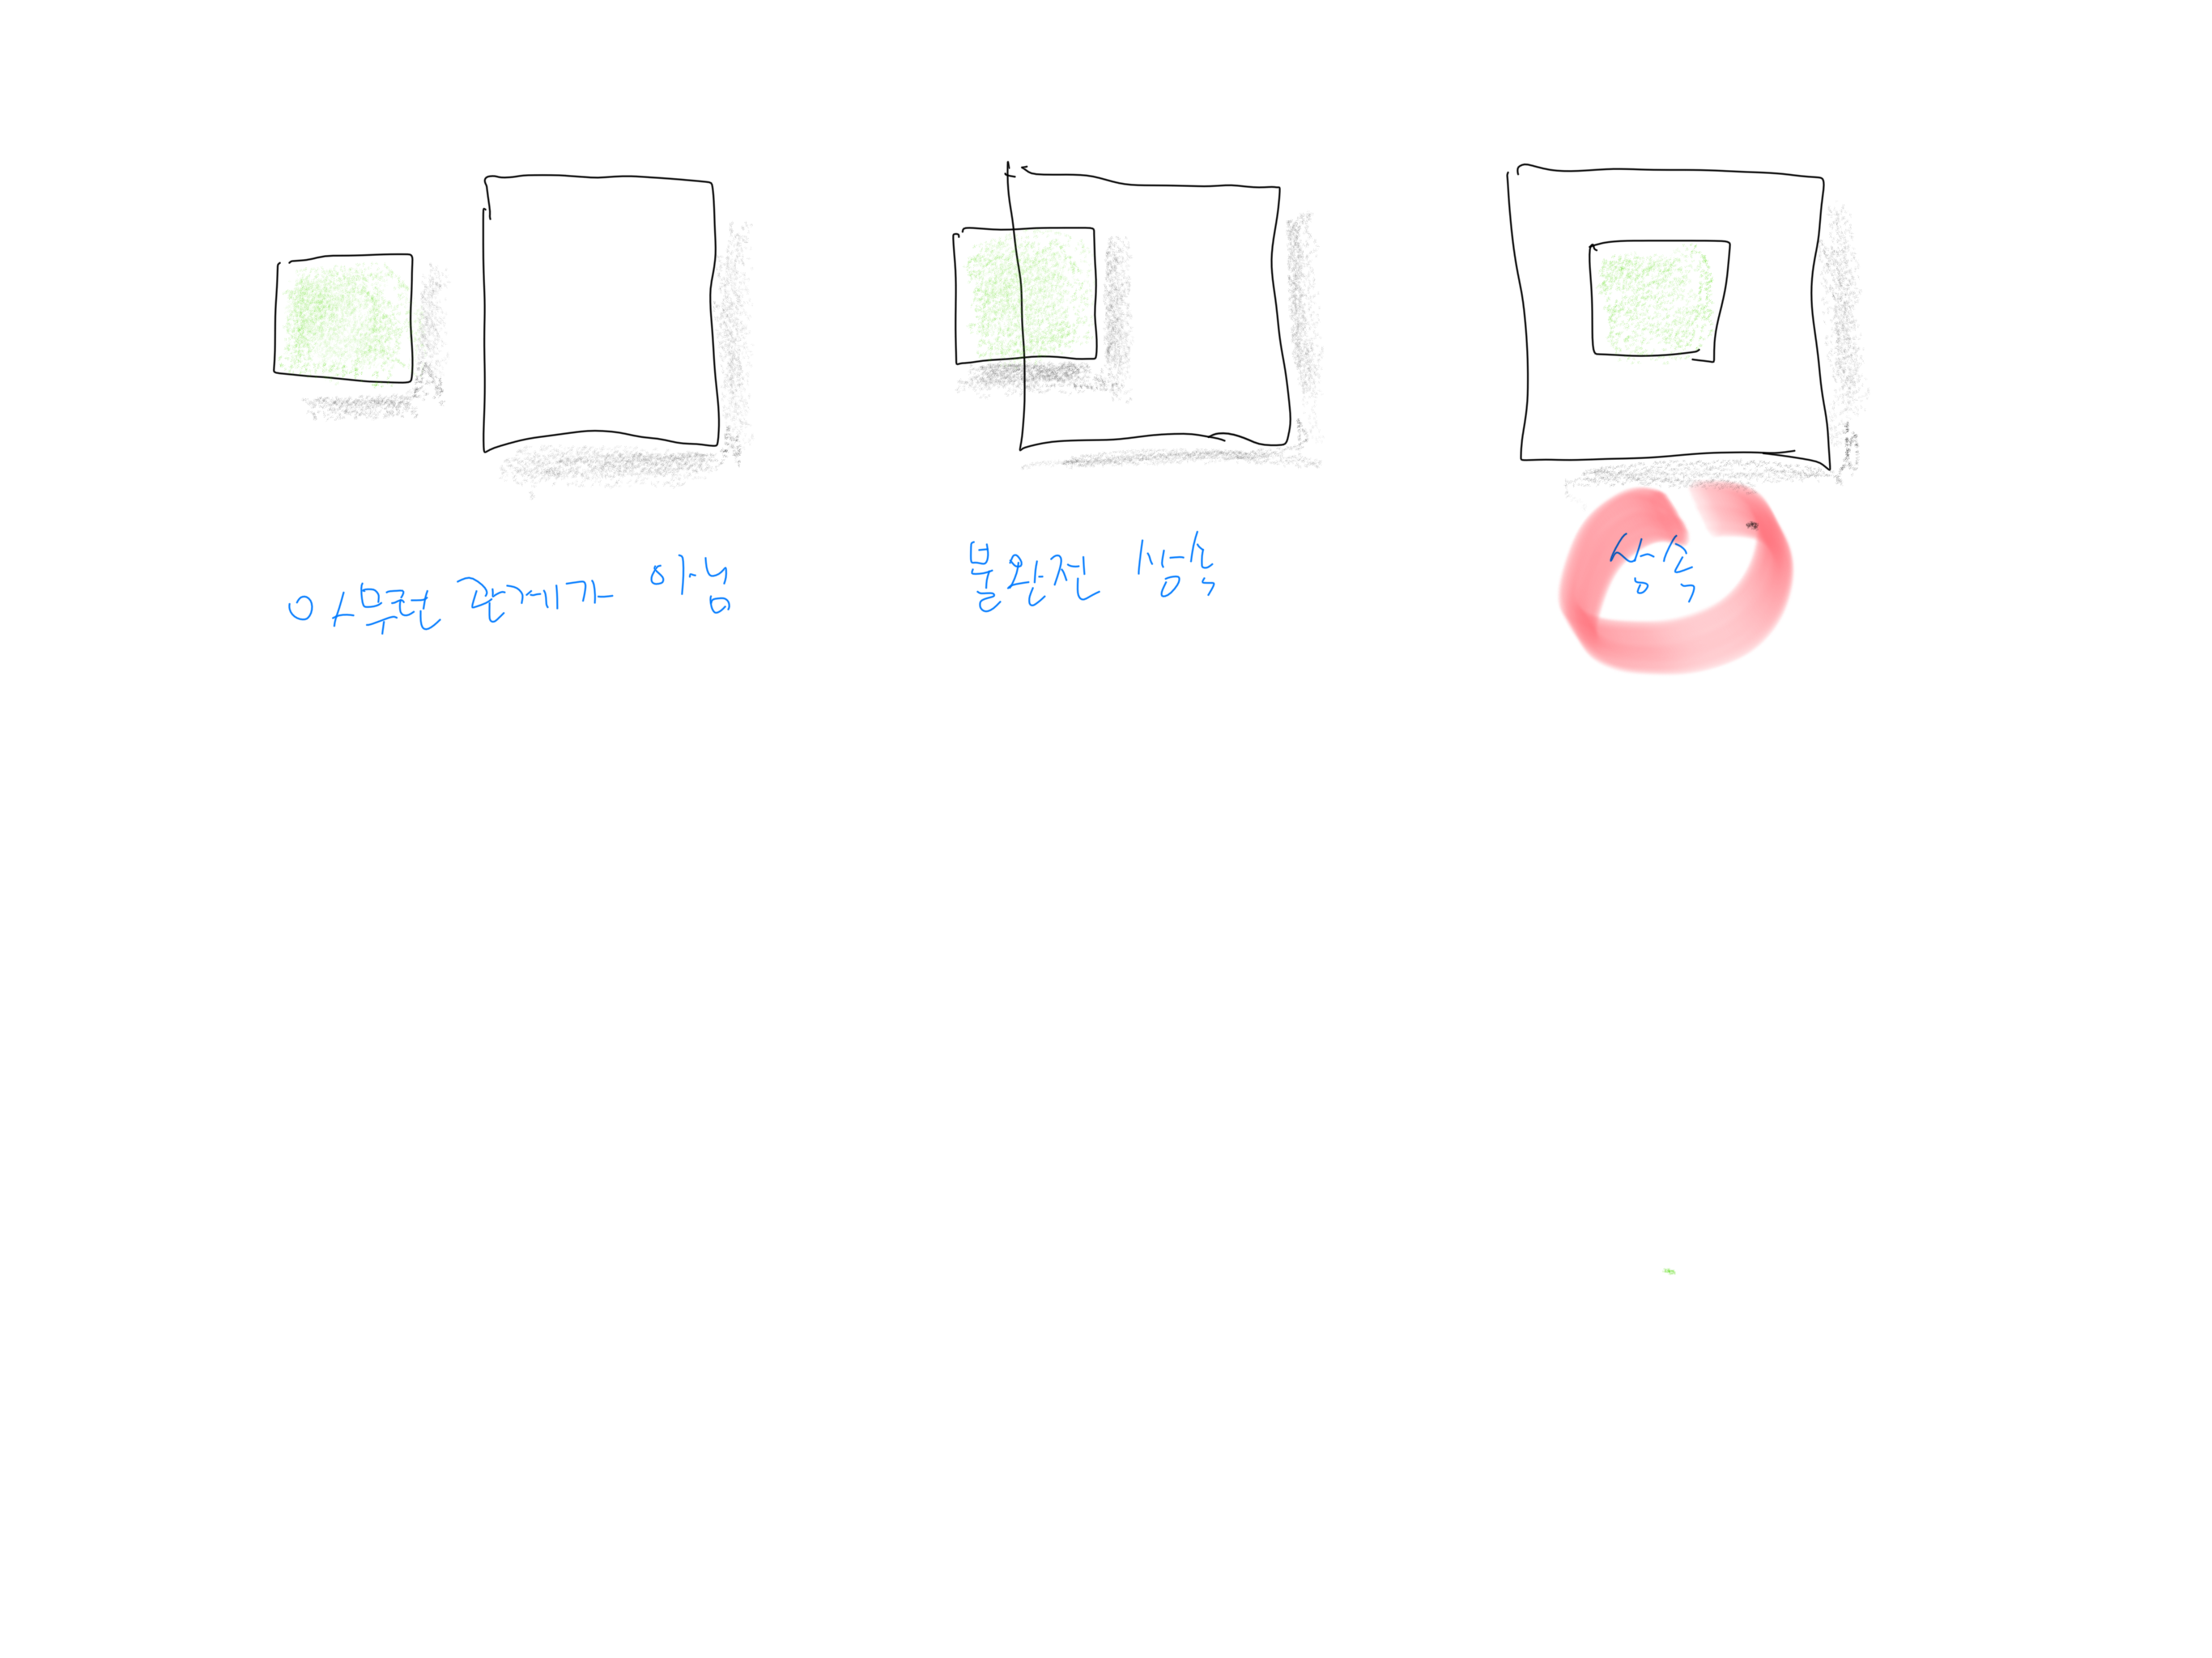 아무런 관계가 아님
불완전 상속
상속